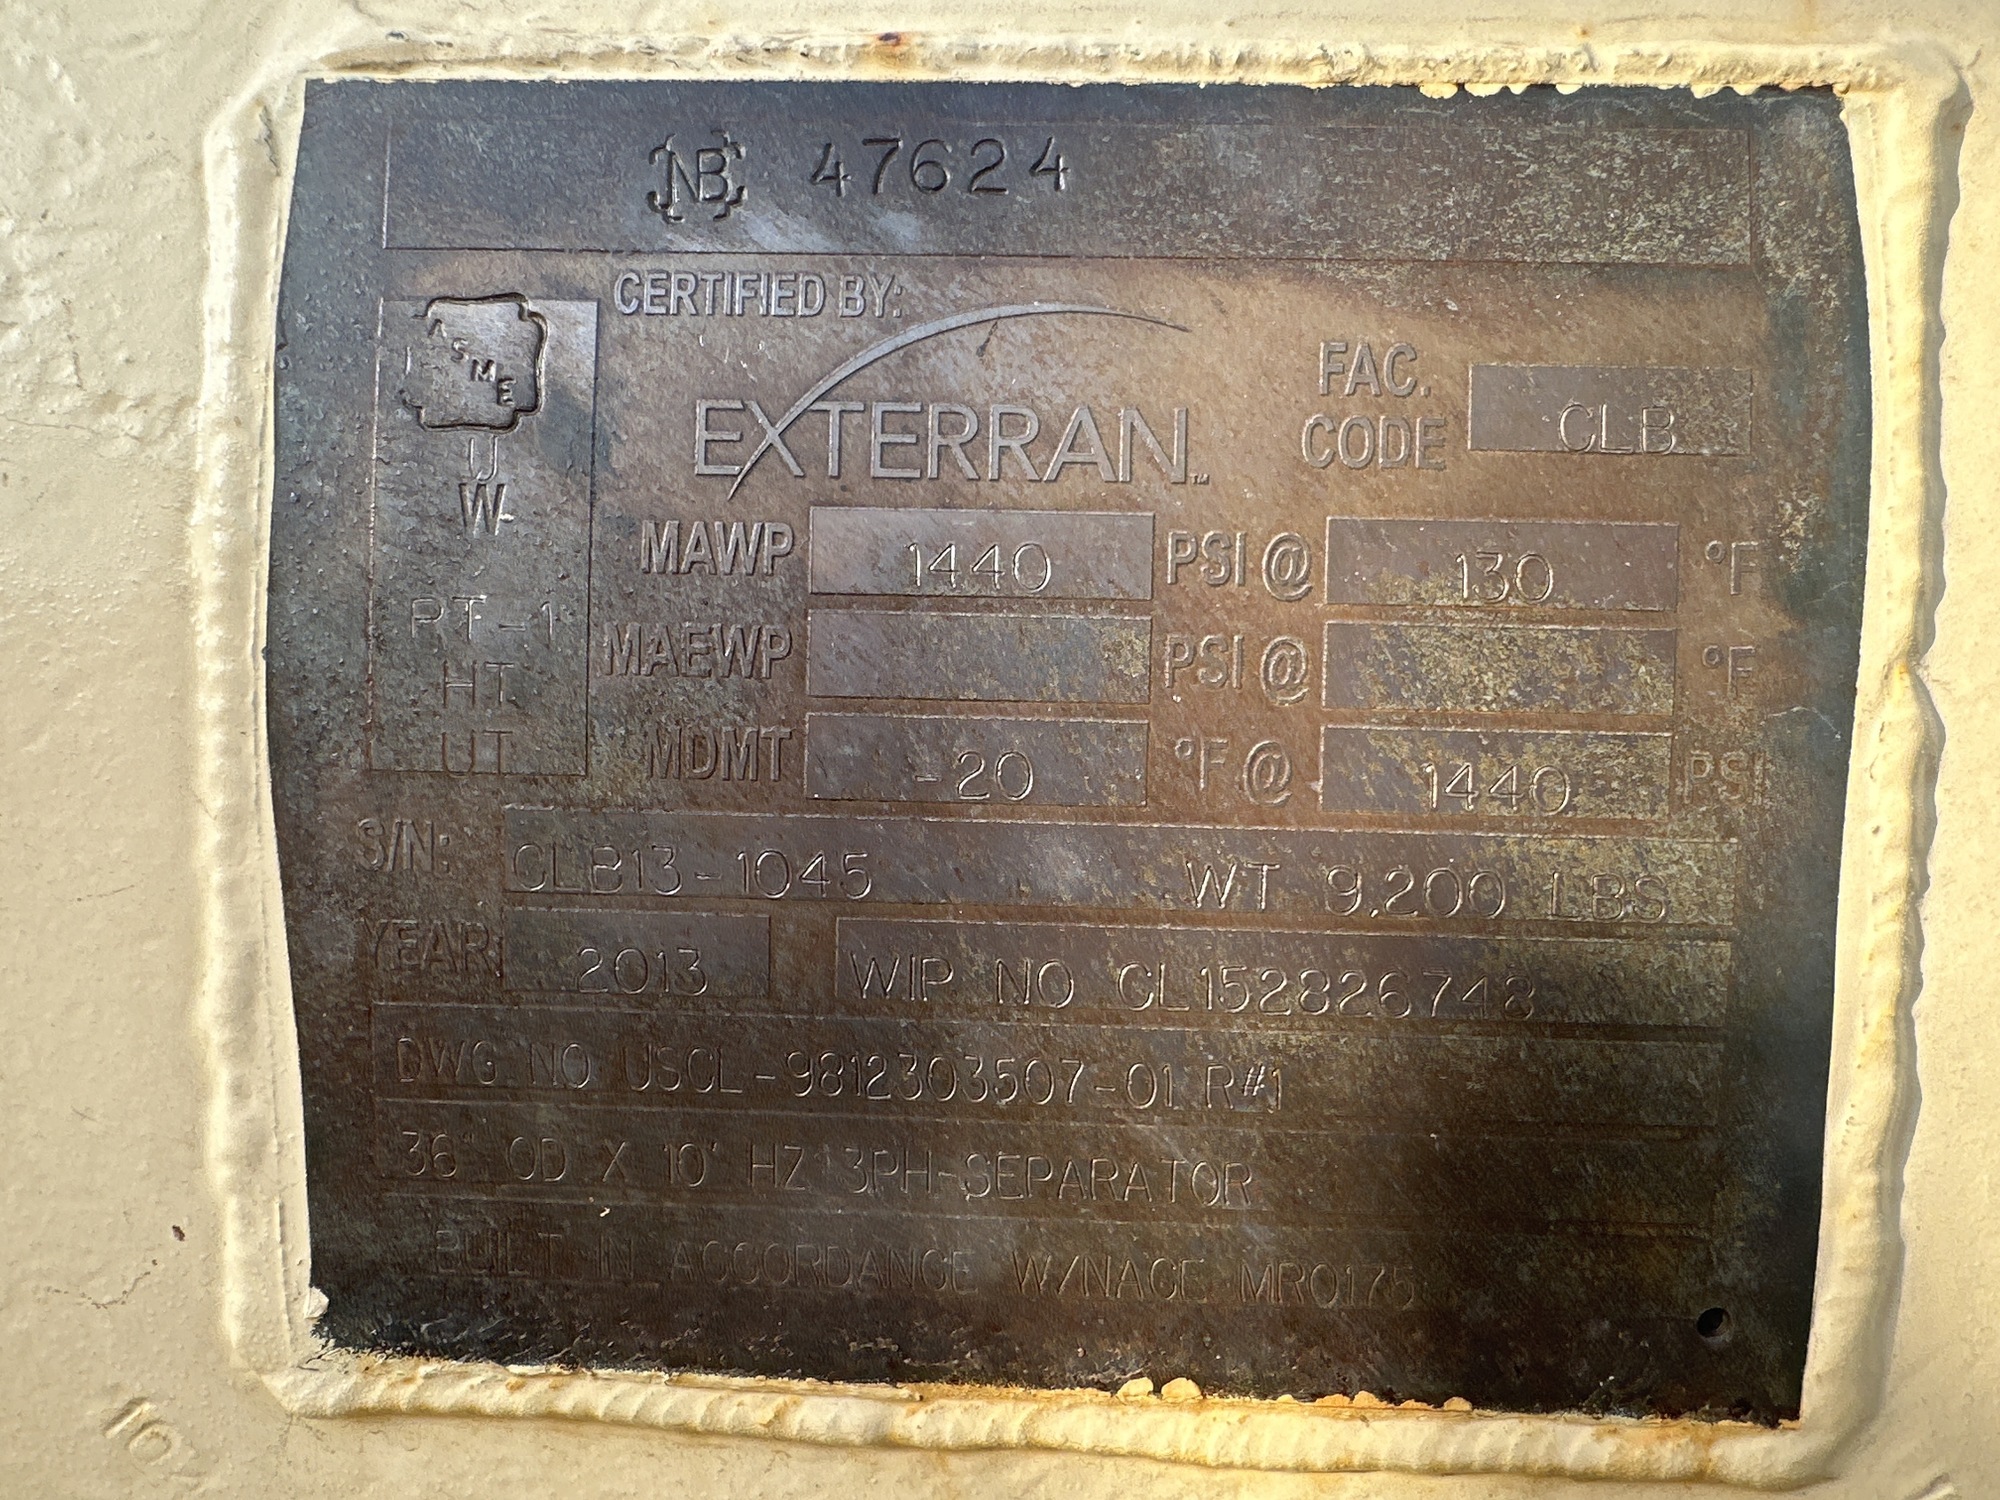 NB 47624
CERTIFIED BY:
ASME
U
W
RT-1
HT
UT
EXTERRAN™
FAC. CODE CLB
MAWP 1440 PSI @ 130 °F
MAEWP PSI @ °F
MDMT -20 °F @ 1440 PSI
S/N: CLB13-1045 WT 9,200 LBS
YEAR: 2013 WIP NO CL152826748
DWG NO USCL-9812303507-01 R#1
36" OD X 10' HZ 3PH-SEPARATOR
BUILT IN ACCORDANCE W/NACE MR0175